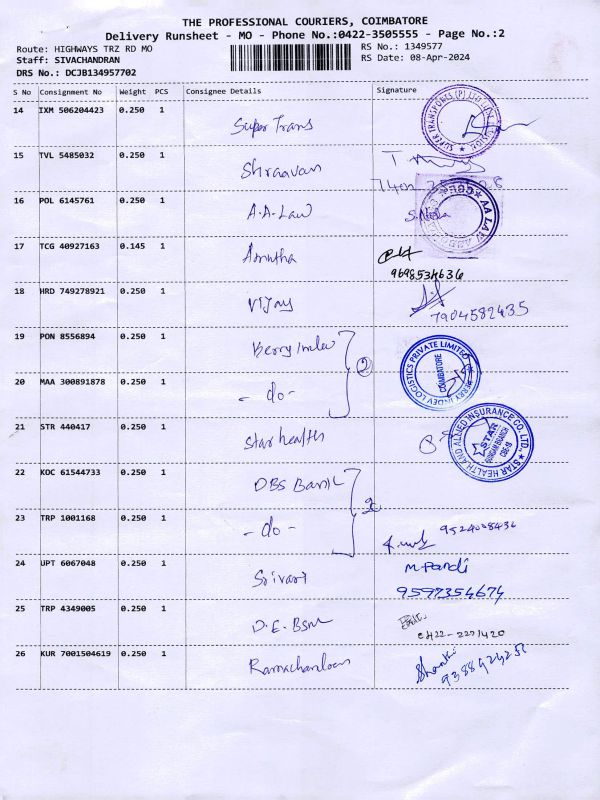 THE PROFESSIONAL COURIERS, COIMBATORE
Delivery Runsheet - MO - Phone No.:0422-3505555 - Page No.:2
Route: HIGHWAYS TRZ RD MO RS No.: 1349577
Staff: SIVACHANDRAN RS Date: 08-Apr-2024
DRS No.: DCJB134957702
S No Consignment No Weight PCS Consignee Details Signature
14 IXM 506204423 0.250 1 Super Trans
15 TVL 5485032 0.250 1 Shraavan
16 POL 6145761 0.250 1 A.A. Law
17 TCG 40927163 0.145 1 Amutha
9698534636
18 HRD 749278921 0.250 1 Vijay
7904582435
19 PON 8556894 0.250 1 Berry Indev
COIMBATORE
20 MAA 300891878 0.250 1 - do - 2
21 STR 440417 0.250 1 Star health
STAR HEALTH AND ALLIED INSURANCE CO. LTD.
STAR
22 KOC 61544733 0.250 1 DBS Bank
23 TRP 1001168 0.250 1 - do - 2
9524008436
24 UPT 6067048 0.250 1 Srivari M. Pandi
9597354674
25 TRP 4349005 0.250 1
26 KUR 7001504619 0.250 1